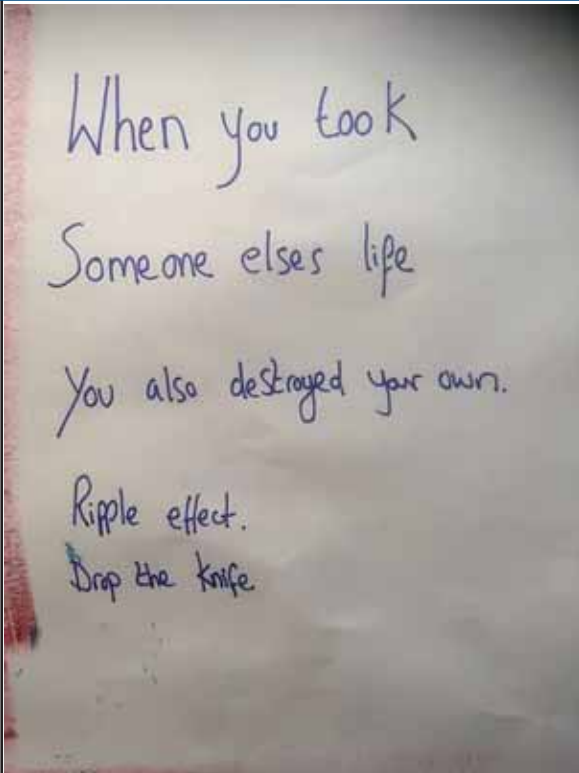 When you took
Someone elses life
You also destroyed your own.
Ripple effect.
Drop the knife